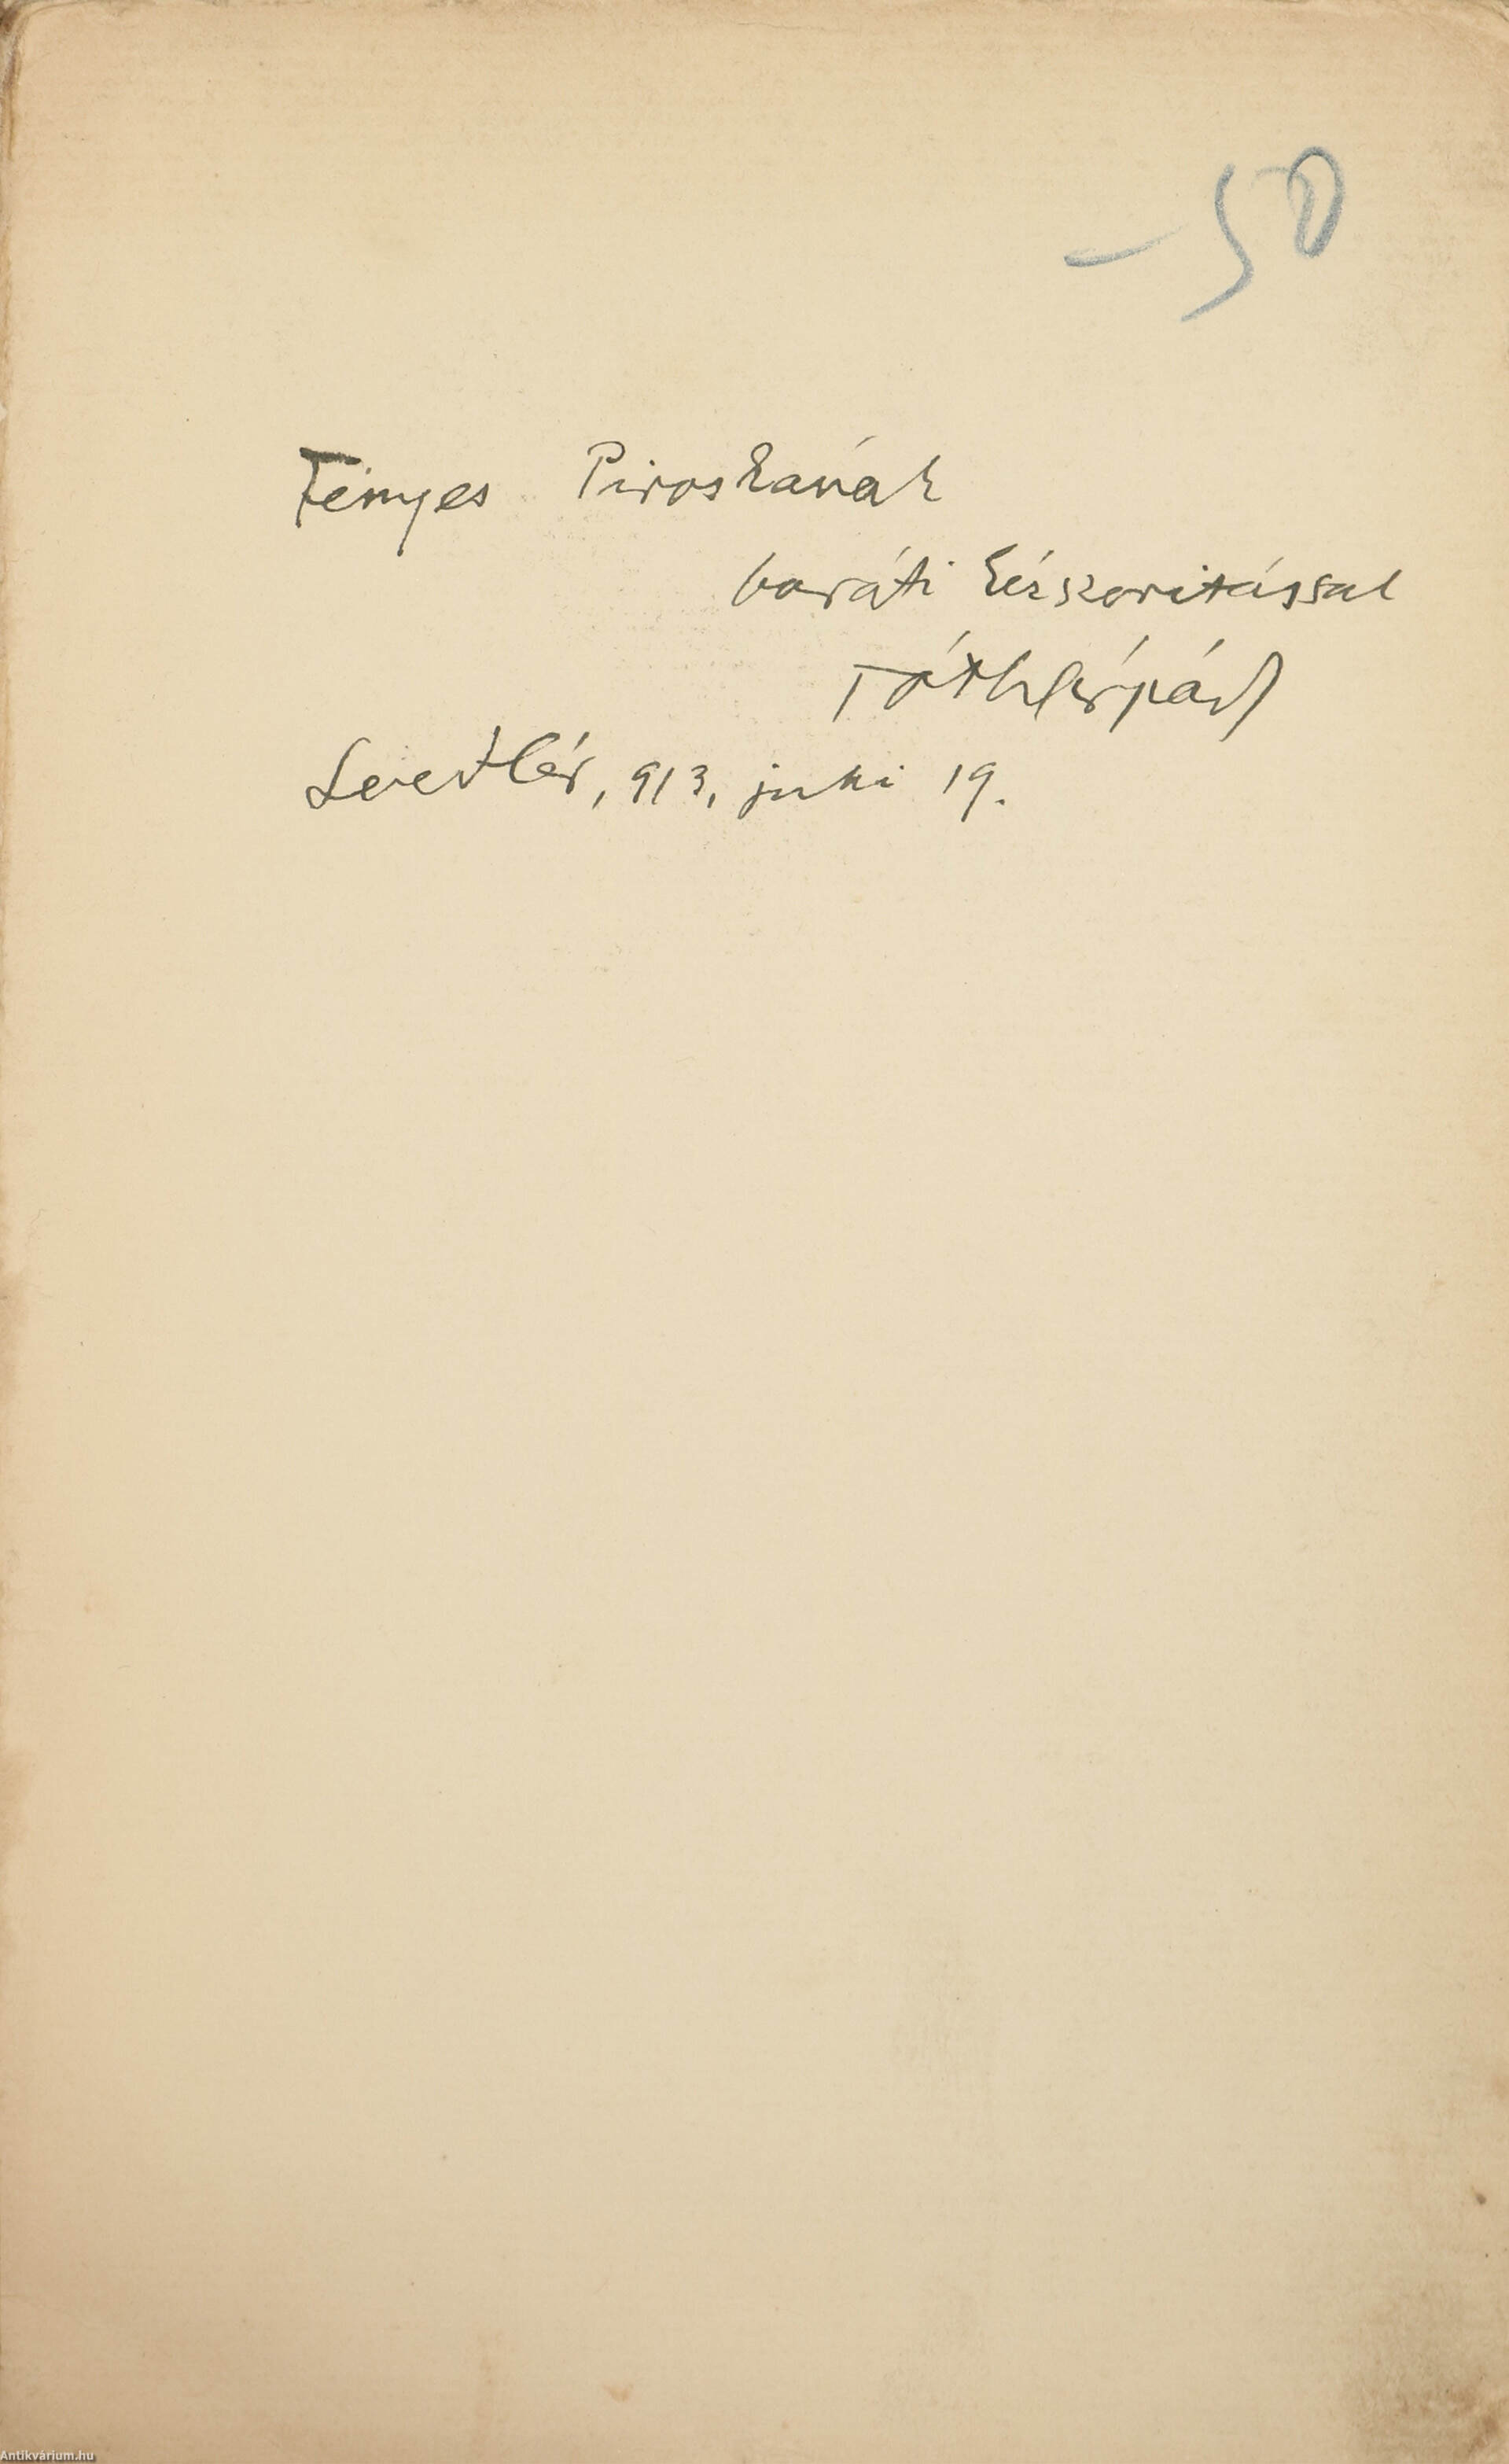 –50
Fényes Piroskának
baráti kézszoritással
Tóth Árpád
913, juni 19.
Antikvárium.hu